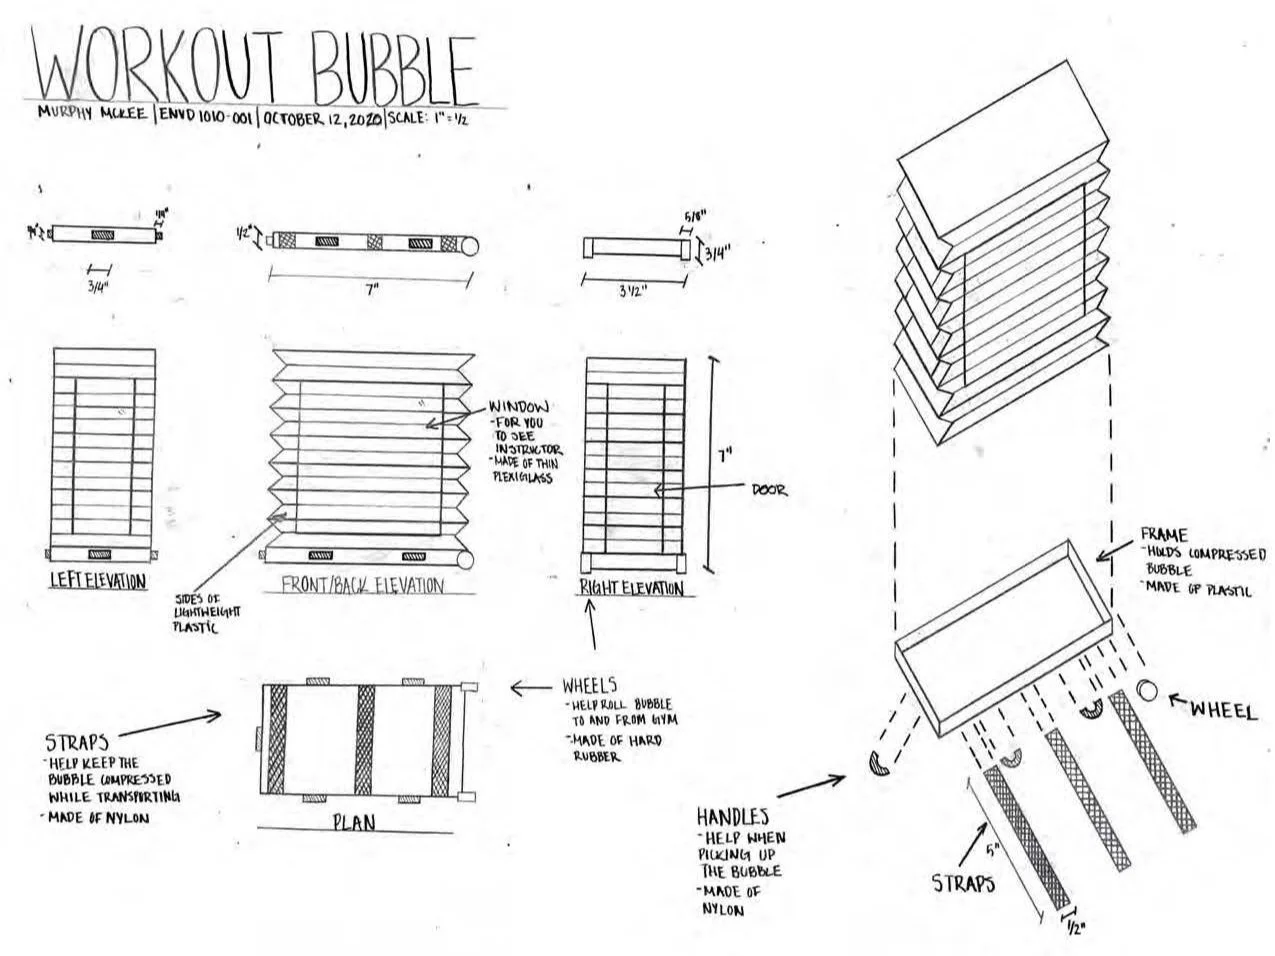 WORKOUT BUBBLE
MURPHY MCKEE | ENVD 1010-001 | OCTOBER 12, 2020 | SCALE: 1" = 1/2
3/4"
1/2"
7"
5/8"
3/4"
3 1/2"
WINDOW
-FOR YOU
TO SEE
INSTRUCTOR
-MADE OF THIN
PLEXIGLASS
7"
DOOR
LEFT ELEVATION
FRONT/BACK ELEVATION
RIGHT ELEVATION
SIDES OF
LIGHTWEIGHT
PLASTIC
STRAPS
-HELP KEEP THE
BUBBLE COMPRESSED
WHILE TRANSPORTING
-MADE OF NYLON
PLAN
WHEELS
-HELP ROLL BUBBLE
TO AND FROM GYM
-MADE OF HARD
RUBBER
FRAME
-HOLDS COMPRESSED
BUBBLE
-MADE OF PLASTIC
WHEEL
HANDLES
-HELP WHEN
PICKING UP
THE BUBBLE
-MADE OF
NYLON
STRAPS
5"
1/2"